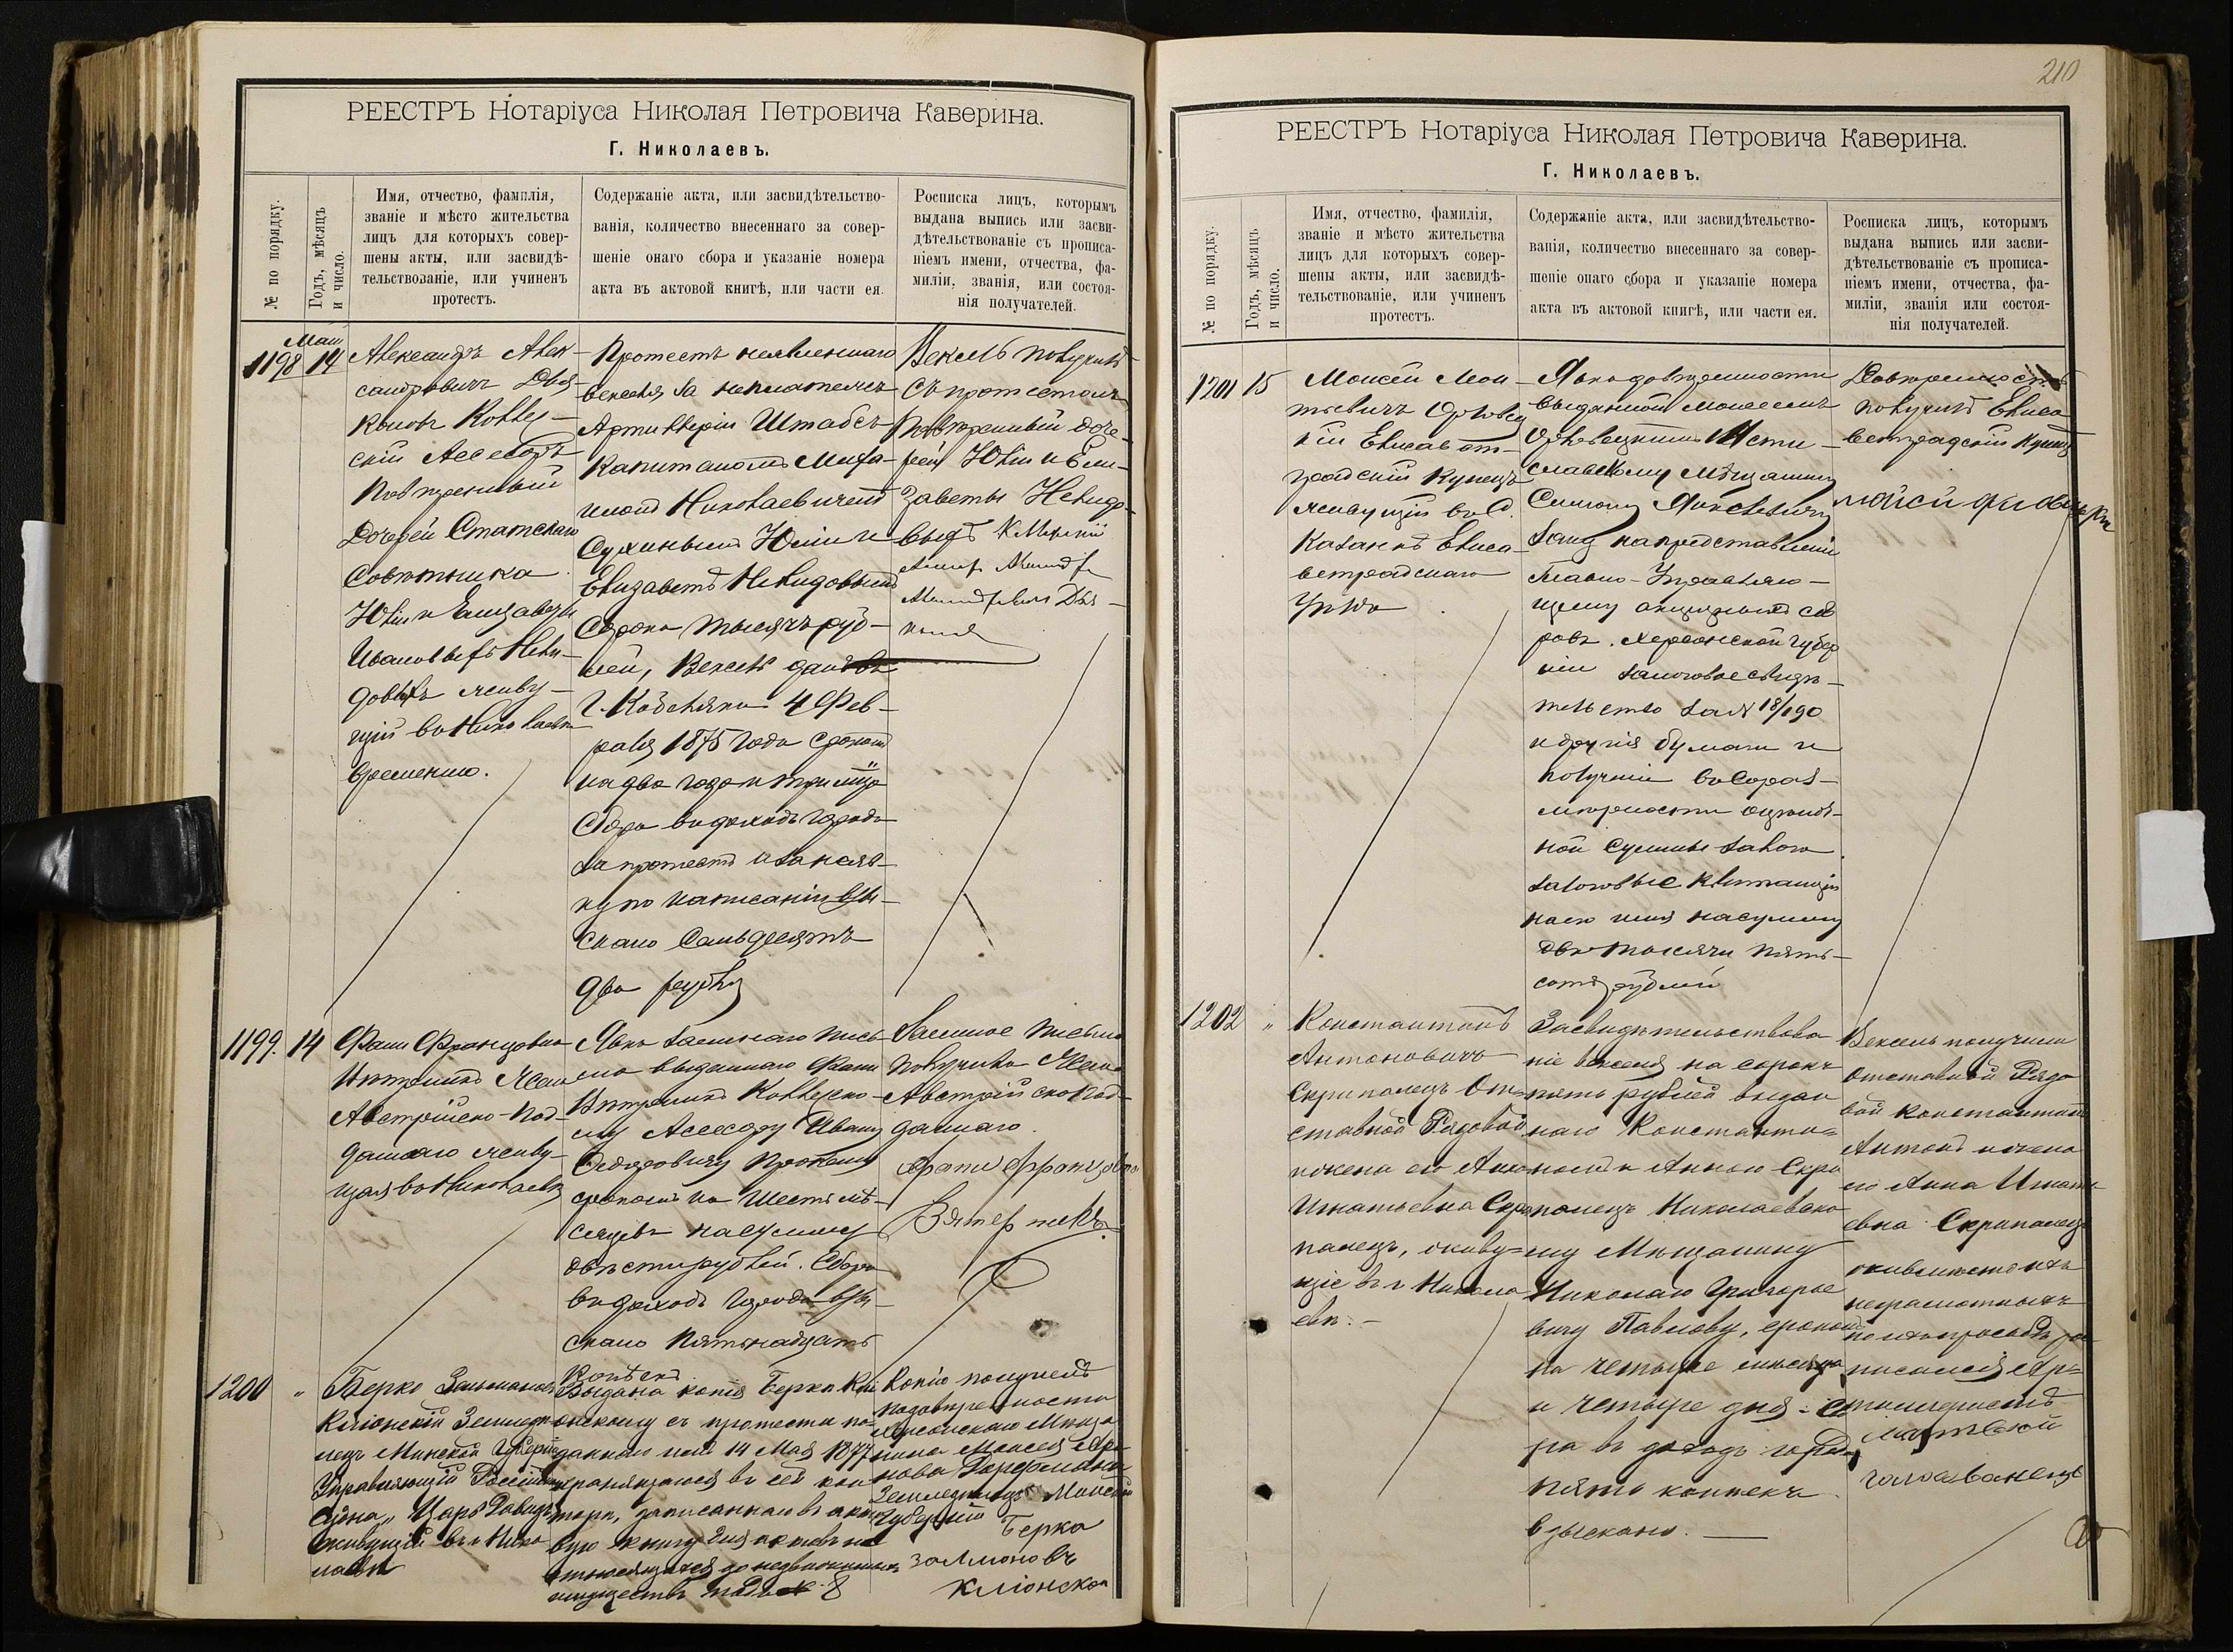 РЕЕСТРЪ Нотаріуса Николая Петровича Каверина.
Г. Николаевъ.
№ по порядку.
Годъ, мѣсяцъ
и число.
Имя, отчество, фамилія,
званіе и мѣсто жительства
лицъ для которыхъ совер-
шены акты, или засвидѣ-
тельствованіе, или учиненъ
протестъ.
Содержаніе акта, или засвидѣтельство-
ванія, количество внесеннаго за совер-
шеніе онаго сбора и указаніе номера
акта въ актовой книгѣ, или части ея.
Росписка лицъ, которымъ
выдана выпись или засви-
дѣтельствованіе съ прописа-
ніемъ имени, отчества, фа-
миліи, званія, или состоя-
нія получателей.
Маія
1198 14
Александръ Алек-
сандровичъ Дья-
коновъ Коллеж-
скій Ассесоръ
Повѣренный
Дочерей Статскаго
Совѣтника
Юліи и Елизаветы
Ивановыхъ Нели-
довыхъ живу-
щій въ Николаевѣ
временно.
Протестъ неявленнаго
векселя за неплатежъ
Артиллеріи Штабсъ
Капитаномъ Миха-
иломъ Николаевичемъ
Сухинымъ Юліи и
Елизаветѣ Нелидовымъ
Сорока тысячъ руб-
лей, Вексель данъ въ
г. 4 Фев-
раля 1875 года срокомъ
на два года и три мѣс
Сбора въ доходъ города
за протестъ и
по написаніи взы-
скано Семьдесятъ
два рубля
Вексель получилъ
съ протестомъ
Повѣренный доче-
рей Юліи и Ели-
заветы Нелидо-
выхъ
1199. 14
Фани Францовна
Жена
Австрійско-Под-
даннаго живу-
щая въ Николаевѣ
Явка заемнаго пись-
ма выданнаго Фани
Коллежско-
му Асессору Ивану
Федоровичу
срокомъ на Шесть мѣ-
сяцевъ на сумму
двѣсти рублей. Сбора
въ доходъ города взы-
скано пятьнадцать
копѣекъ
Заемное письмо
получила Жена
Австрійско Под-
даннаго.
Фани Францовна
1200 "
Берко Залмановъ
Кліонскій Землед-
лецъ Минской Губерніи
Управляющій
судна „Царь Давидъ"
живущій въ г. Нико-
лаевѣ
Выдана копія Берко Клі-
онскому съ протеста по-
даннаго имъ 14 Мая 1877
хранящагося въ сей кон-
торѣ, записаннаго въ акто-
вую книгу для актовъ не
относящихся до недвижимыхъ
имуществъ подъ № 8
Копію получилъ
по довѣренности
Херсонскаго Мѣща-
нина Моисея
Земледѣлецъ Минской
Губерніи Берка
Залмоновъ
Кліонской
210
РЕЕСТРЪ Нотаріуса Николая Петровича Каверина.
Г. Николаевъ.
№ по порядку.
Годъ, мѣсяцъ
и число.
Имя, отчество, фамилія,
званіе и мѣсто жительства
лицъ для которыхъ совер-
шены акты, или засвидѣ-
тельствованіе, или учиненъ
протестъ.
Содержаніе акта, или засвидѣтельство-
ванія, количество внесеннаго за совер-
шеніе онаго сбора и указаніе номера
акта въ актовой книгѣ, или части ея.
Росписка лицъ, которымъ
выдана выпись или засви-
дѣтельствованіе съ прописа-
ніемъ имени, отчества, фа-
миліи, званія или состоя-
нія получателей.
1201 15
Моисей
Елисавет-
градскій купецъ
живущій въ с.
Казанкѣ Елиса-
ветградскаго
Уѣзда
Явка довѣренности
выданной Моисеемъ
Мсти-
славскому Мѣщанину
на представленіи
Главно-Управляю-
щему акцизными сбо
ровъ. Херсонской губер
ніи залоговое свидѣ-
тельство за № 18/190
и другія бумаги и
полученіи въ Сораз-
мѣрности
ной суммы залога
залоговые квитанціи
на его имя на сумму
двѣ тысячи пять-
сотъ рублей
Довѣренность
получилъ Елиса
ветградскій купецъ
1202 "
Константинъ
Антоновичъ
Скрипалецъ От-
ставной Рядовой
и жена его Анна
Игнатьевна Скри
палецъ, живу-
щіе въ г. Никола
евѣ. -
Засвидѣтельствова
ніе векселя на сорокъ
пять рублей выдан
наго Константи=
номъ и Анною Скри
палецъ Николаевско
му Мѣщанину
Николаю Григорье
вичу Павлову, срокомъ
на четыре мѣсяца
и четыре дня. Сбо
ра въ доходъ города
пять копѣекъ
взыскано.
Вексель получили
Отставной Рядо
вой Константинъ
Антоновъ и жена
его Анна Игнать-
евна Скрипалецъ
а вмѣсто ихъ
неграмотныхъ
по ихъ просьбѣ ро
списался